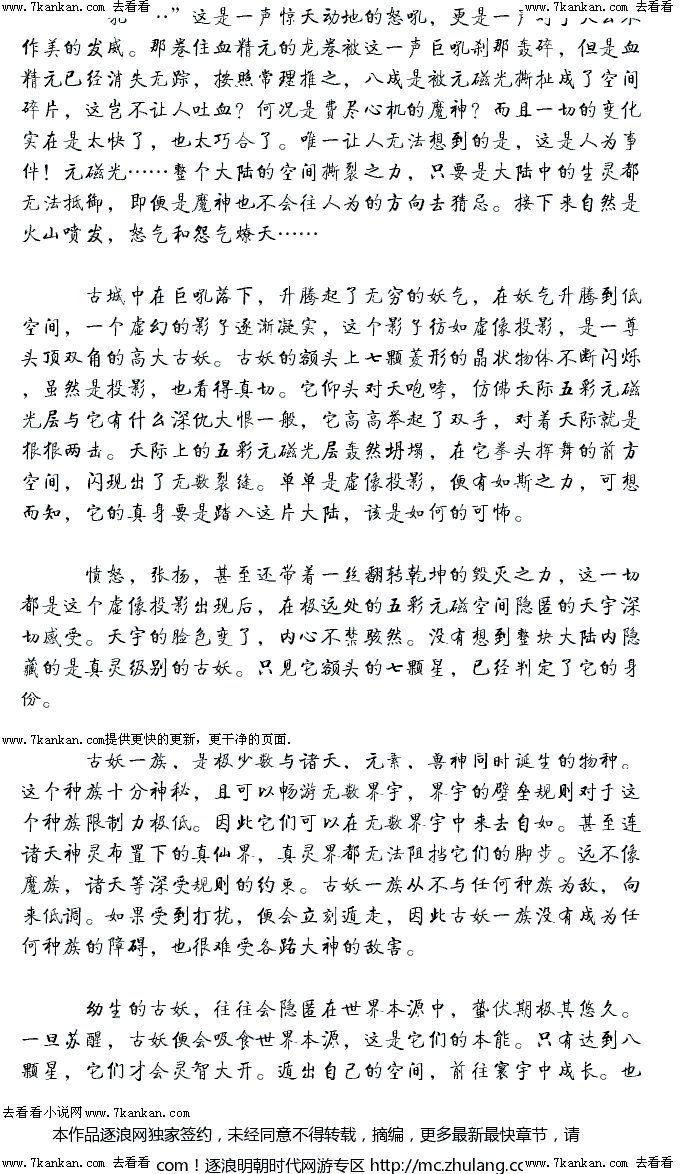 www.7kankan.com 去看看 www.7kankan.com 去看看 www.7kankan.com 去看看 www.7kankan.com 去看看
”这是一声惊天动地的怒吼，更是一声
作美的发威。那卷住血精元的龙卷被这一声巨吼刹那轰碎，但是血
精元已经消失无踪，按照常理推之，八成是被元磁光撕扯成了空间
碎片，这岂不让人吐血？何况是费尽心机的魔神？而且一切的变化
实在是太快了，也太巧合了。唯一让人无法想到的是，这是人为事
件！元磁光……整个大陆的空间撕裂之力，只要是大陆中的生灵都
无法抵御，即便是魔神也不会往人为的方向去猜忌。接下来自然是
火山喷发，怒气和怨气燎天……
古城中在巨吼落下，升腾起了无穷的妖气，在妖气升腾到低
空间，一个虚幻的影子逐渐凝实，这个影子彷如虚像投影，是一尊
头顶双角的高大古妖。古妖的额头上七颗菱形的晶状物体不断闪烁
，虽然是投影，也看得真切。它仰头对天咆哮，仿佛天际五彩元磁
光层与它有什么深仇大恨一般，它高高举起了双手，对着天际就是
狠狠两击。天际上的五彩元磁光层轰然坍塌，在它拳头挥舞的前方
空间，闪现出了无数裂缝。单单是虚像投影，便有如斯之力，可想
而知，它的真身要是踏入这片大陆，该是如何的可怖。
愤怒，张扬，甚至还带着一丝翻转乾坤的毁灭之力，这一切
都是这个虚像投影出现后，在极远处的五彩元磁空间隐匿的天宇深
切感受。天宇的脸色变了，内心不禁骇然。没有想到整块大陆内隐
藏的是真灵级别的古妖。只见它额头的七颗星，已经判定了它的身
份。
www.7kankan.com提供更快的更新，更干净的页面.
古妖一族，是极少数与诸天，元素，兽神同时诞生的物种。
这个种族十分神秘，且可以畅游无数界宇，界宇的壁垒规则对于这
个种族限制力极低。因此它们可以在无数界宇中来去自如。甚至连
诸天神灵布置下的真仙界，真灵界都无法阻挡它们的脚步。远不像
魔族，诸天等深受规则的约束。古妖一族从不与任何种族为敌，向
来低调。如果受到打扰，便会立刻遁走，因此古妖一族没有成为任
何种族的障碍，也很难受各路大神的敌害。
幼生的古妖，往往会隐匿在世界本源中，蛰伏期极其悠久。
一旦苏醒，古妖便会吸食世界本源，这是它们的本能。只有达到八
颗星，它们才会灵智大开。遁出自己的空间，前往寰宇中成长。也
去看看小说网www.7kankan.com
本作品逐浪网独家签约，未经同意不得转载，摘编，更多最新最快章节，请
www.7kankan.com 去看看 com！逐浪明朝时代网游专区 http://mc.zhulang.co www.7kankan.com 去看看